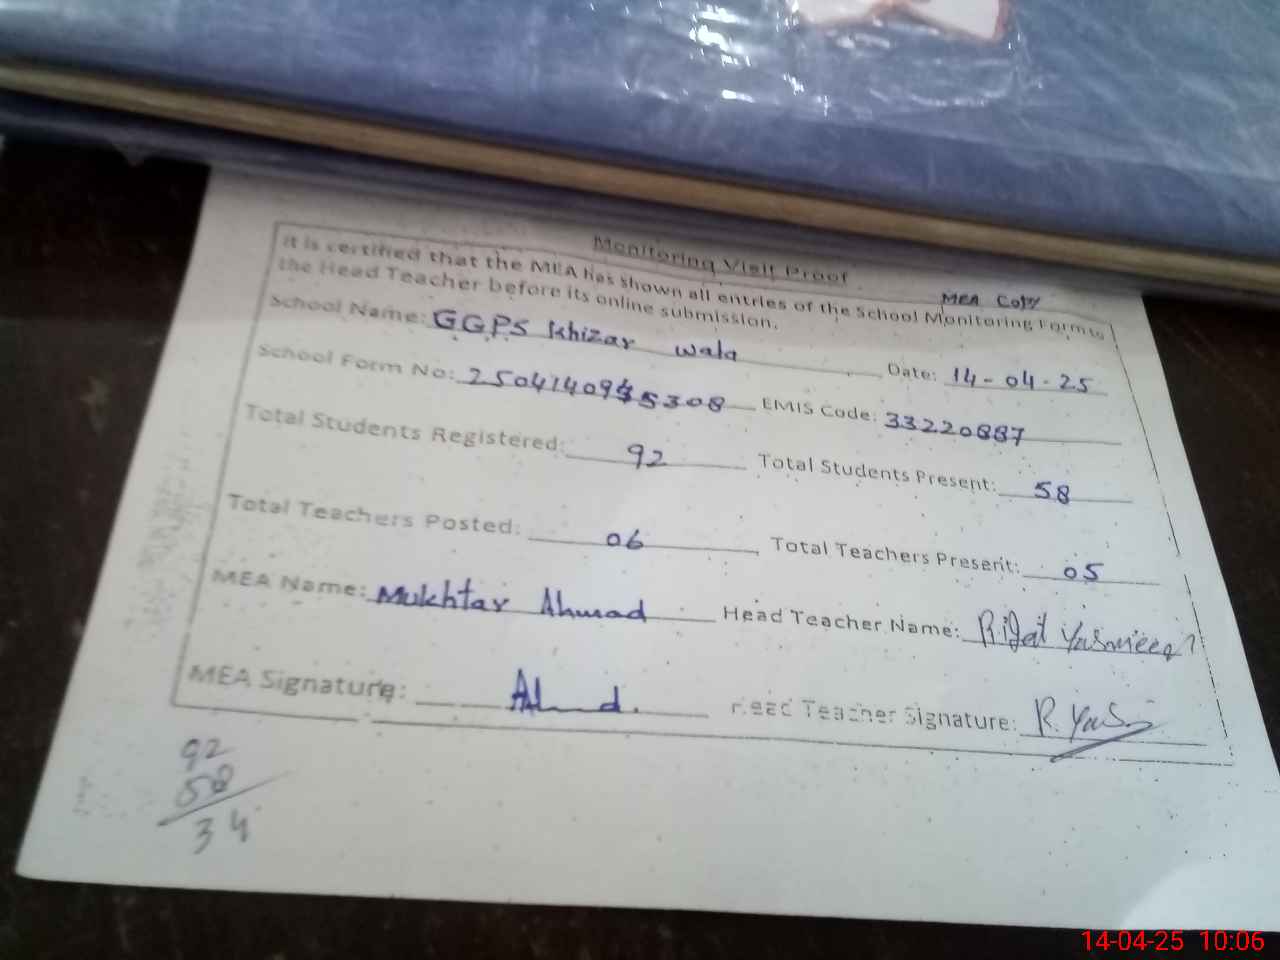 Monitoring Visit Proof
MEA Copy
It is certified that the MEA has shown all entries of the School Monitoring Form to
the Head Teacher before its online submission.
School Name: GGPS Khizar wala Date: 14-04-25
School Form No: EMIS Code: 33220887
Total Students Registered: 92 Total Students Present: 58
Total Teachers Posted: 06 Total Teachers Present: 05
MEA Name: Mukhtar Ahmad Head Teacher Name: Rifat Yasmeen
MEA Signature: Head Teacher Signature: R. Yas
92
58
34
14-04-25 10:06